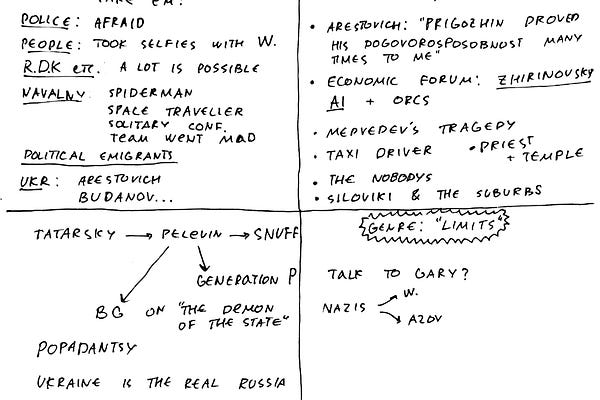 TAKE EM:
POLICE: AFRAID
PEOPLE: TOOK SELFIES WITH W.
R.D.K etc. A LOT IS POSSIBLE
NAVALNY SPIDERMAN
SPACE TRAVELLER
SOLITARY CONF.
TEAM WENT MAD
POLITICAL EMIGRANTS
UKR: ARESTOVICH
BUDANOV...
• ARESTOVICH: "PRIGOZHIN PROVED
HIS DOGOVOROSPOSOBNOST MANY
TIMES TO ME"
• ECONOMIC FORUM: ZHIRINOVSKY
AI + ORCS
• MEDVEDEV'S TRAGEDY
• TAXI DRIVER • PRIEST
+ TEMPLE
• THE NOBODYS
• SILOVIKI & THE SUBURBS
TATARSKY → PELEVIN → SNUFF
GENERATION P
BG ON "THE DEMON
OF THE STATE"
POPADANTSY
UKRAINE IS THE REAL RUSSIA
GENRE: "LIMITS"
TALK TO GARY?
NAZIS → W.
→ AZOV